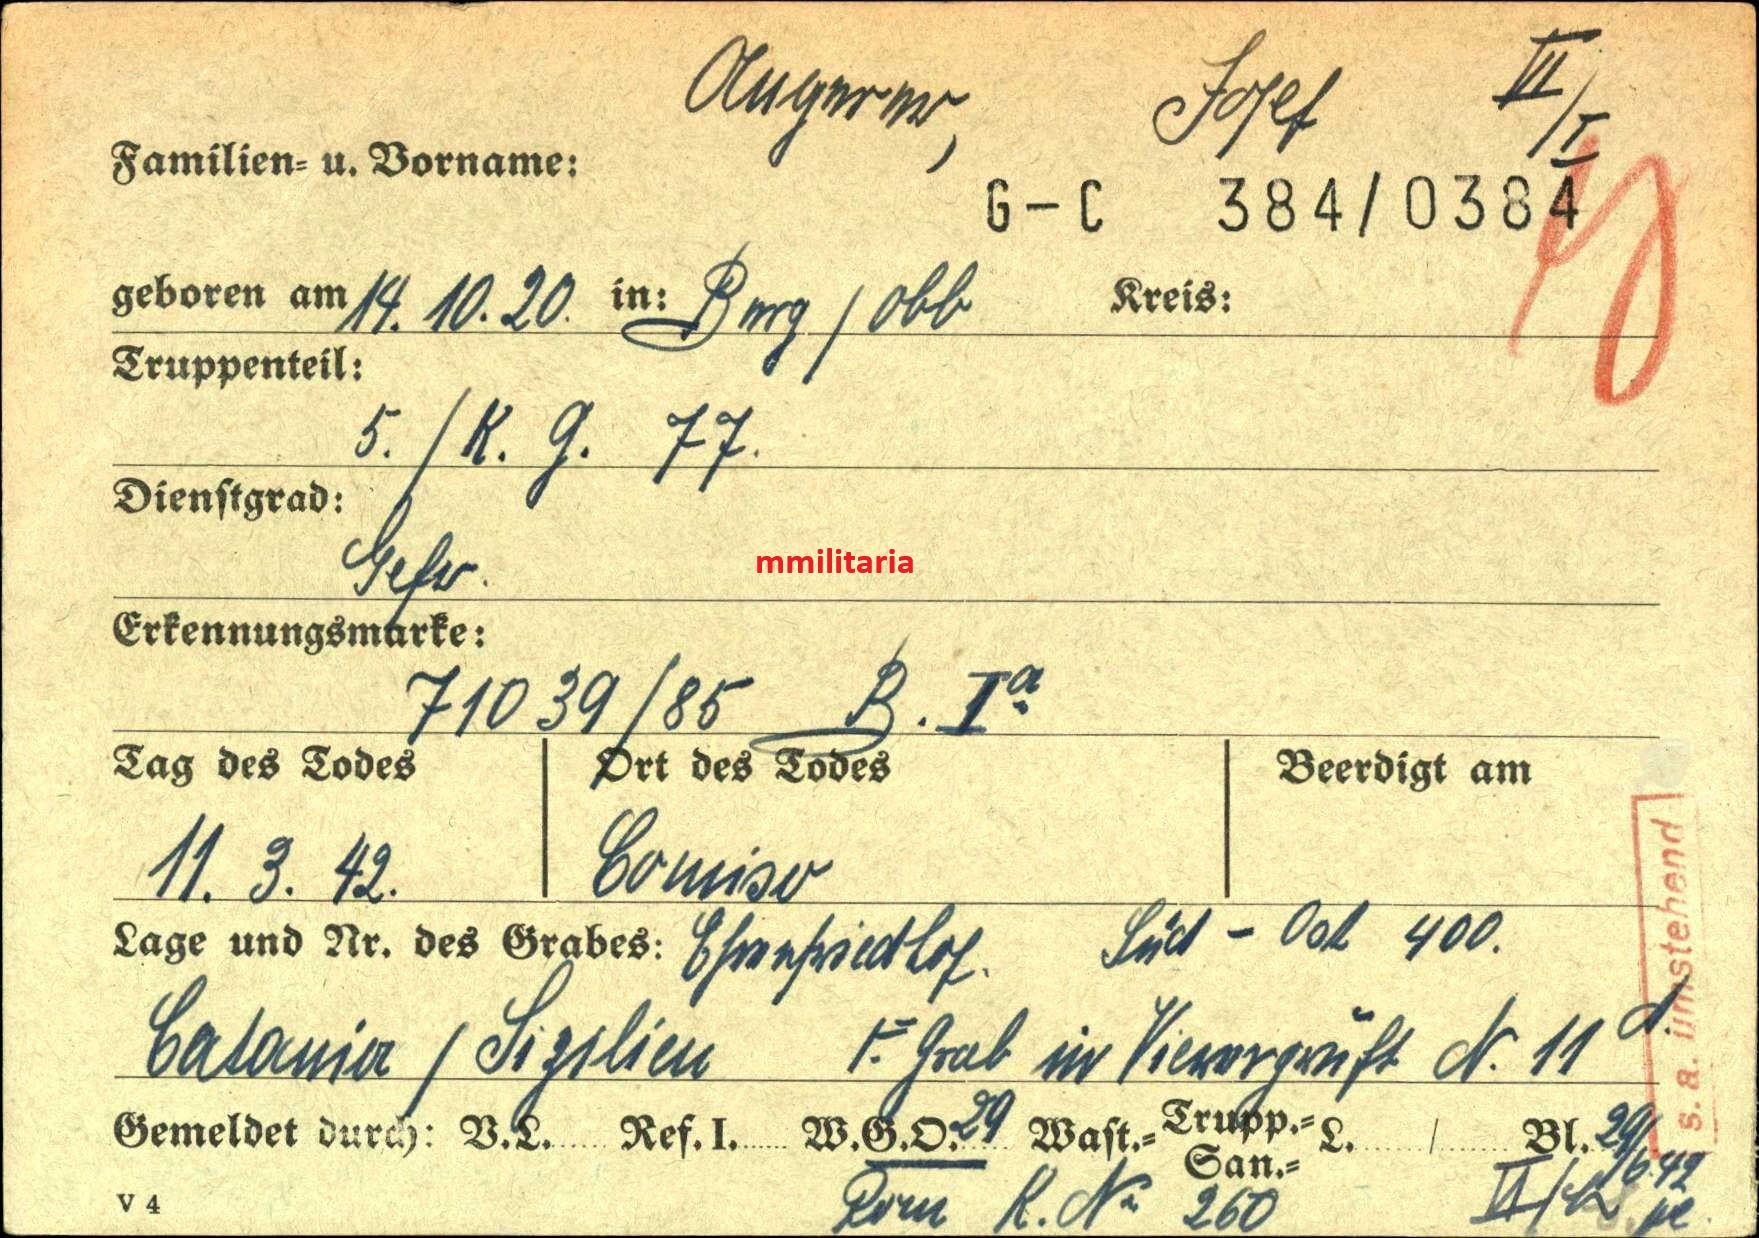 Angerer, Josef VII/I
Familien- u. Vorname:
G-C 384/0384
geboren am 14. 10. 20. in: Burg / Obb Kreis:
Truppenteil:
5. / K. G. 77.
Dienstgrad:
Gefr.
mmilitaria
Erkennungsmarke:
71039/85 B. Ia
Tag des Todes Ort des Todes Beerdigt am
11. 3. 42. Comiso
Lage und Nr. des Grabes: Ehrenfriedhof. Süd - Ost 400.
Catania / Sizilien 1. Grab in Vierergruft N. 11 d.
s. a. umstehend
Gemeldet durch: V.L. Ref. I. W.G.O. 29 Wast.= Trupp.= San.= L. / Bl. 29/6.42
Rom K. Nr. 260
V 4